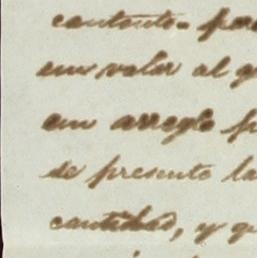 contento= par
en valor al q
en arreglo p
se presente la
cantidad, y q